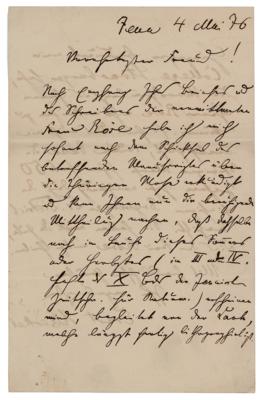 Jena 4 Mai 76
Verehrtester Freund!
Nach Empfang Ihres Briefes u. d.
des Schreibens der verwittweten
Frau Röse habe ich mich
sofort nach dem Schicksal des
betreffenden Manuscriptes über
die Thüringer erkundigt
u. kann Ihnen nur die beruhigende
Mittheilung machen, daß dasselbe
noch im Laufe dieses Sommers
oder Herbstes (in III oder IV.
Hefte des X Bds der Jenaisch.
Zeitschr. für Naturw.) erscheinen
wird, begleitet von der Karte,
welche längst fertig lithographiert ist.